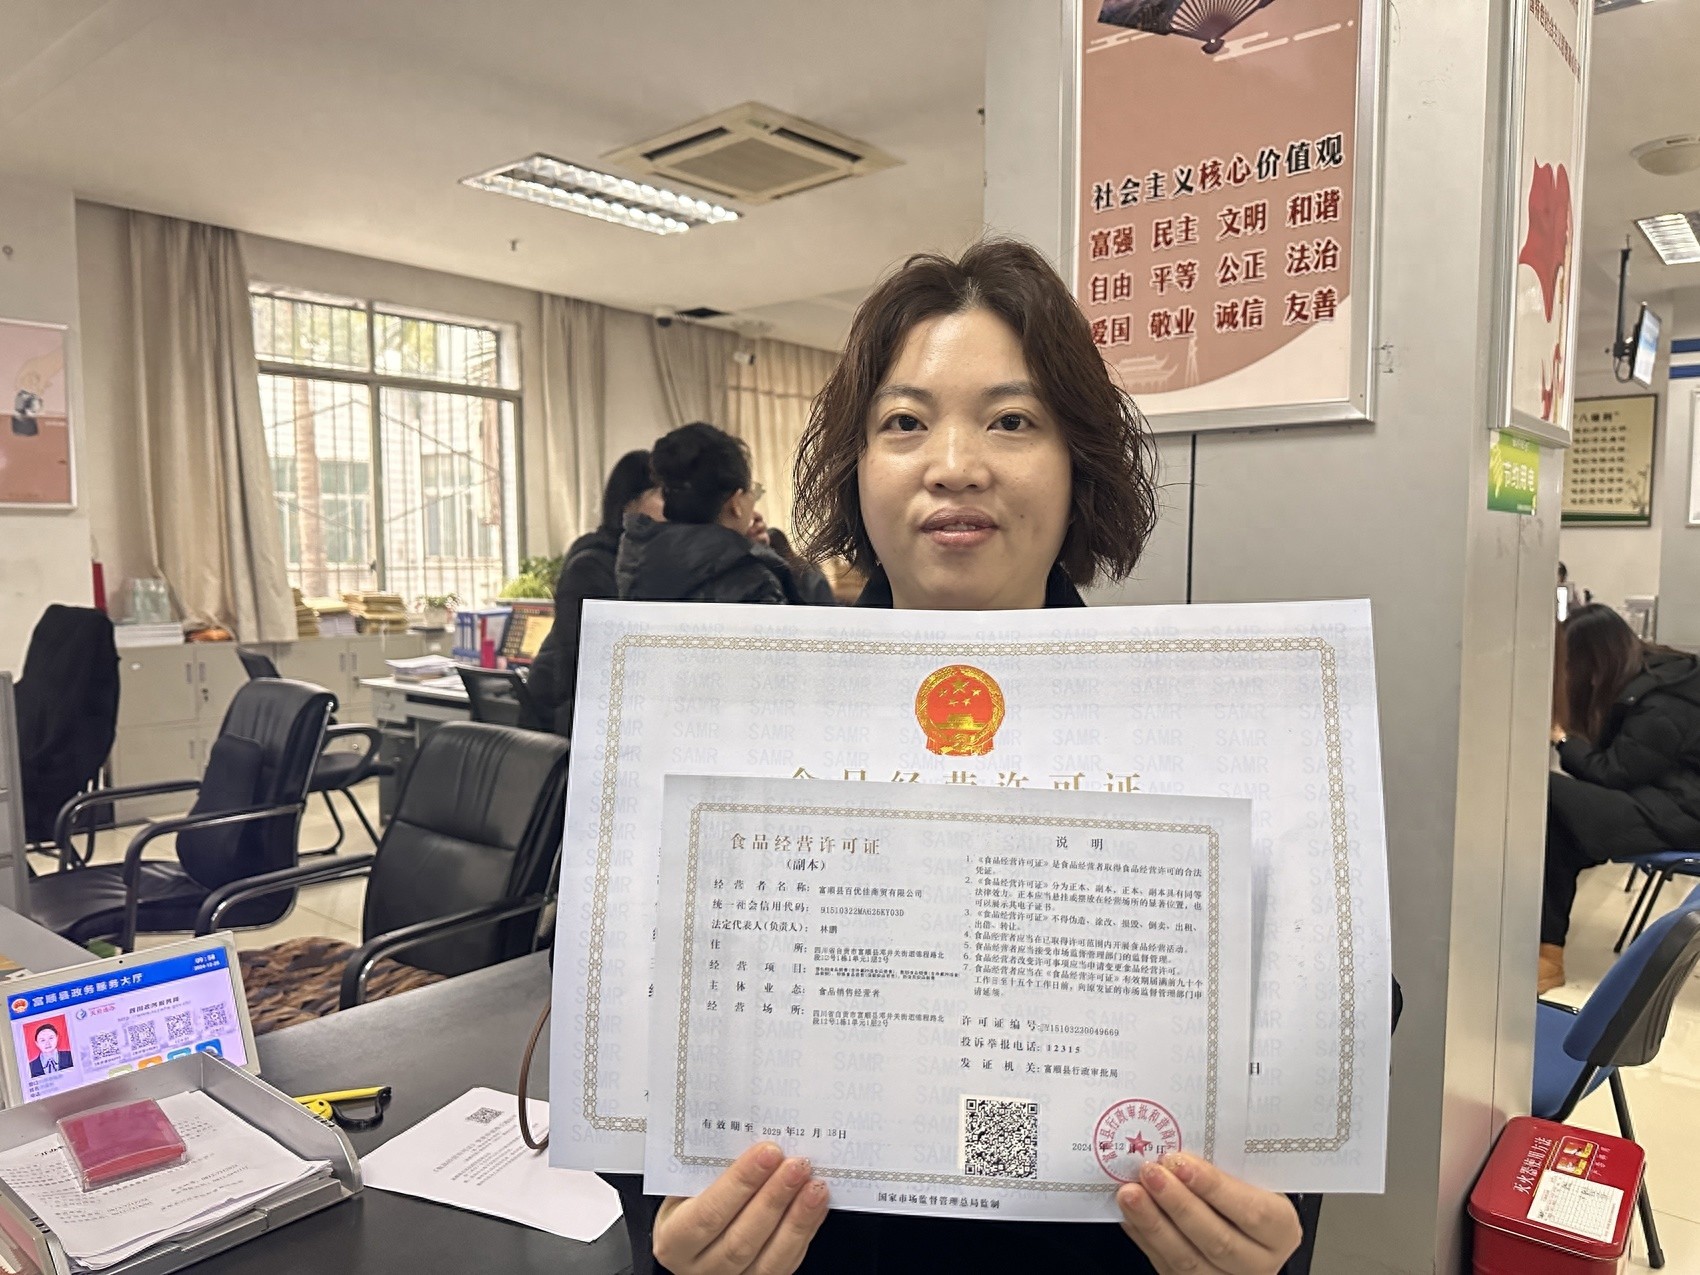 社会主义核心价值观
富强 民主 文明 和谐
自由 平等 公正 法治
爱国 敬业 诚信 友善
节约用电
食品经营许可证
食品经营许可证
(副本)
经营者名称: 富顺县百优佳商贸有限公司
统一社会信用代码: 91510322MAH26KY03D
法定代表人(负责人): 林鹏
住所: 四川省自贡市富顺县邓井关街道德程路北
段12号1栋1单元1层2号
经营项目:
主体业态: 食品销售经营者
经营场所: 四川省自贡市富顺县邓井关街道德程路北
段12号1栋1单元1层2号
有效期至 2029 年12 月 18日
说 明
1. 《食品经营许可证》是食品经营者取得食品经营许可的合法
凭证。
2. 《食品经营许可证》分为正本、副本。正本、副本具有同等
法律效力。正本应当悬挂或摆放在经营场所的显著位置,也
可以展示其电子证书。
3. 《食品经营许可证》不得伪造、涂改、损毁、倒卖、出租、
出借、转让。
4. 食品经营者应当在已取得许可范围内开展食品经营活动。
5. 食品经营者应当接受市场监督管理部门的监督管理。
6. 食品经营者改变许可事项应当申请变更食品经营许可。
7. 食品经营者应当在《食品经营许可证》有效期届满前九十个
工作日至十五个工作日前,向原发证的市场监督管理部门申
请延续。
许可证编号: JY15103230049669
投诉举报电话: 12315
发证机关: 富顺县行政审批局
2024 年 12 月 19日
国家市场监督管理总局监制
日
SAMR
富顺县政务服务大厅
09:58
2024-12-20
四川政务服务网
灭火器使用方法